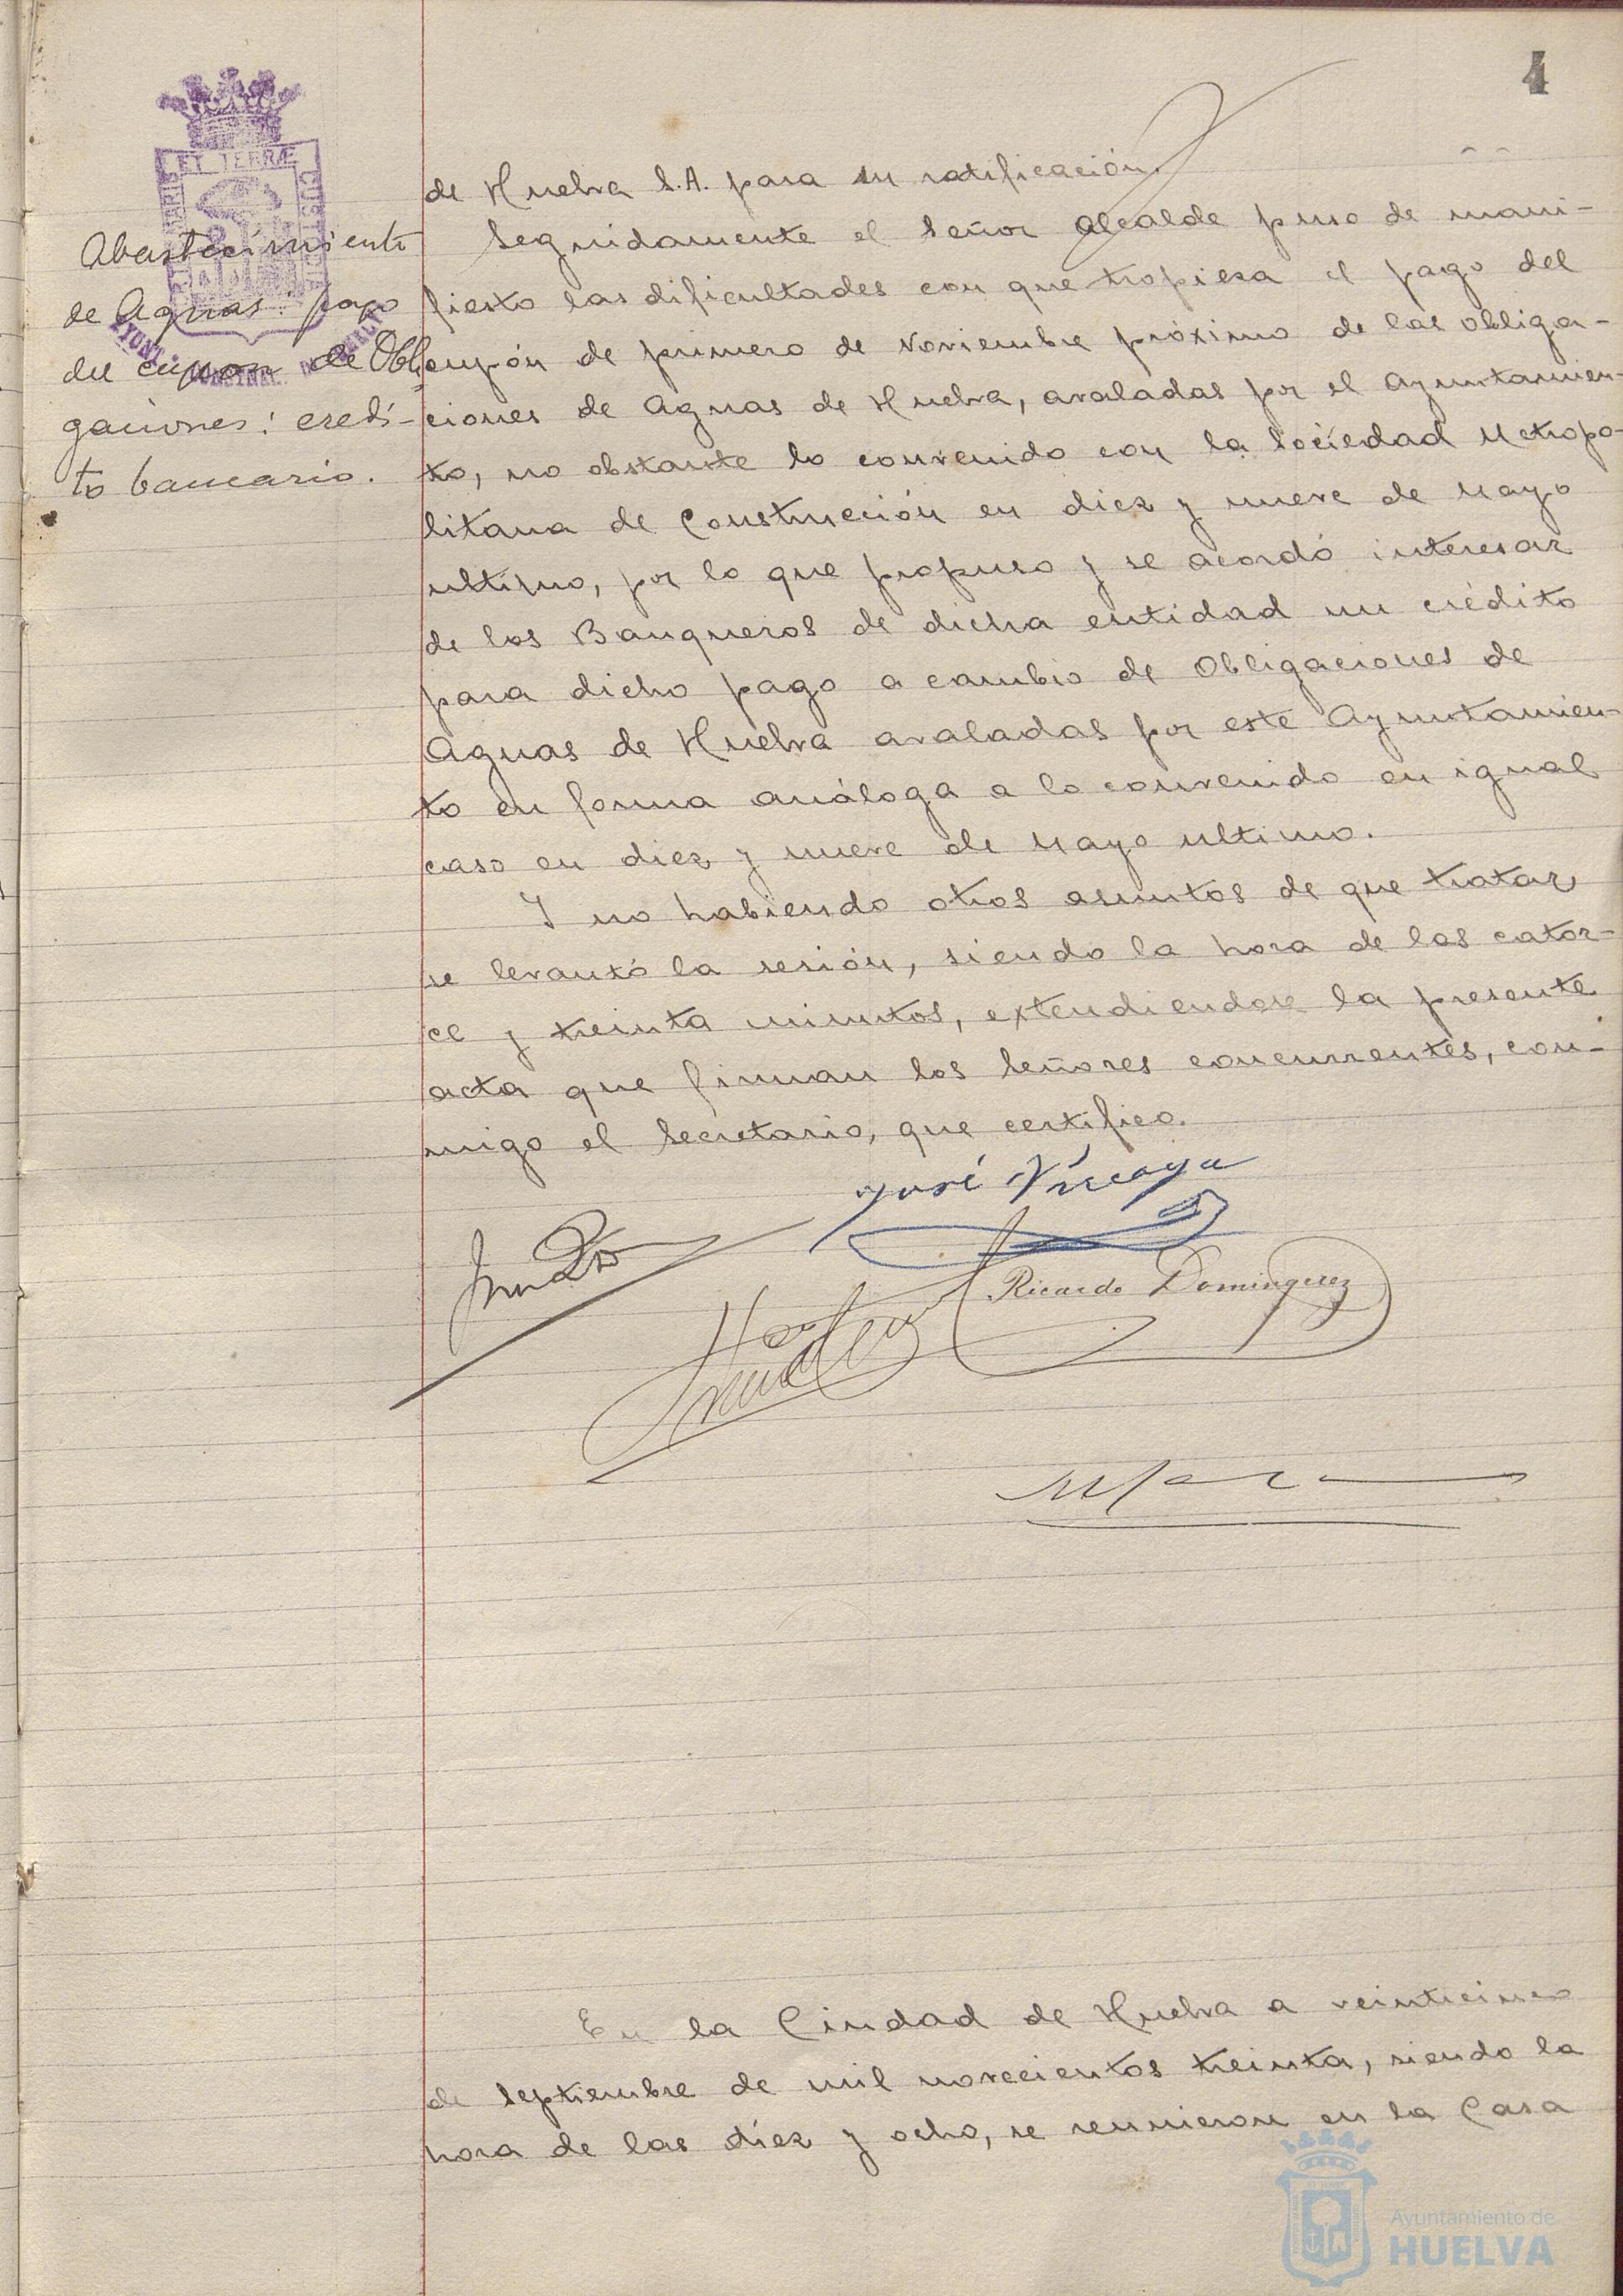 4
de Huelva S.A. para su ratificación.
Seguidamente el Señor Alcalde puso de mani-
fiesto las dificultades con que tropieza el pago del
cupón de primero de Noviembre próximo de las obliga-
ciones de Aguas de Huelva, avaladas por el Ayuntamien-
to, no obstante lo convenido con la Sociedad Metropo-
litana de Construcción en diez y nueve de Mayo
ultimo, por lo que propuso y se acordó interesar
de los Banqueros de dicha entidad un crédito
para dicho pago a cambio de Obligaciones de
Aguas de Huelva avaladas por este Ayuntamien-
to en forma análoga a lo convenido en igual
caso en diez y nueve de Mayo ultimo.
Y no habiendo otros asuntos de que tratar
se levantó la sesión, siendo la hora de las cator-
ce y treinta minutos, extendiendose la presente
acta que firman los Señores concurrentes, con-
migo el Secretario, que certifico.
Abastecimiento
de Aguas: pago
del cupon de Obli
gaciones: credi-
to bancario.
ET TERRÆ
José Vizcaya
Ricardo Dominguez
En la Ciudad de Huelva a veinticinco
de Septiembre de mil novecientos treinta, siendo la
hora de las diez y ocho, se reunieron en la Casa
Ayuntamiento de
HUELVA